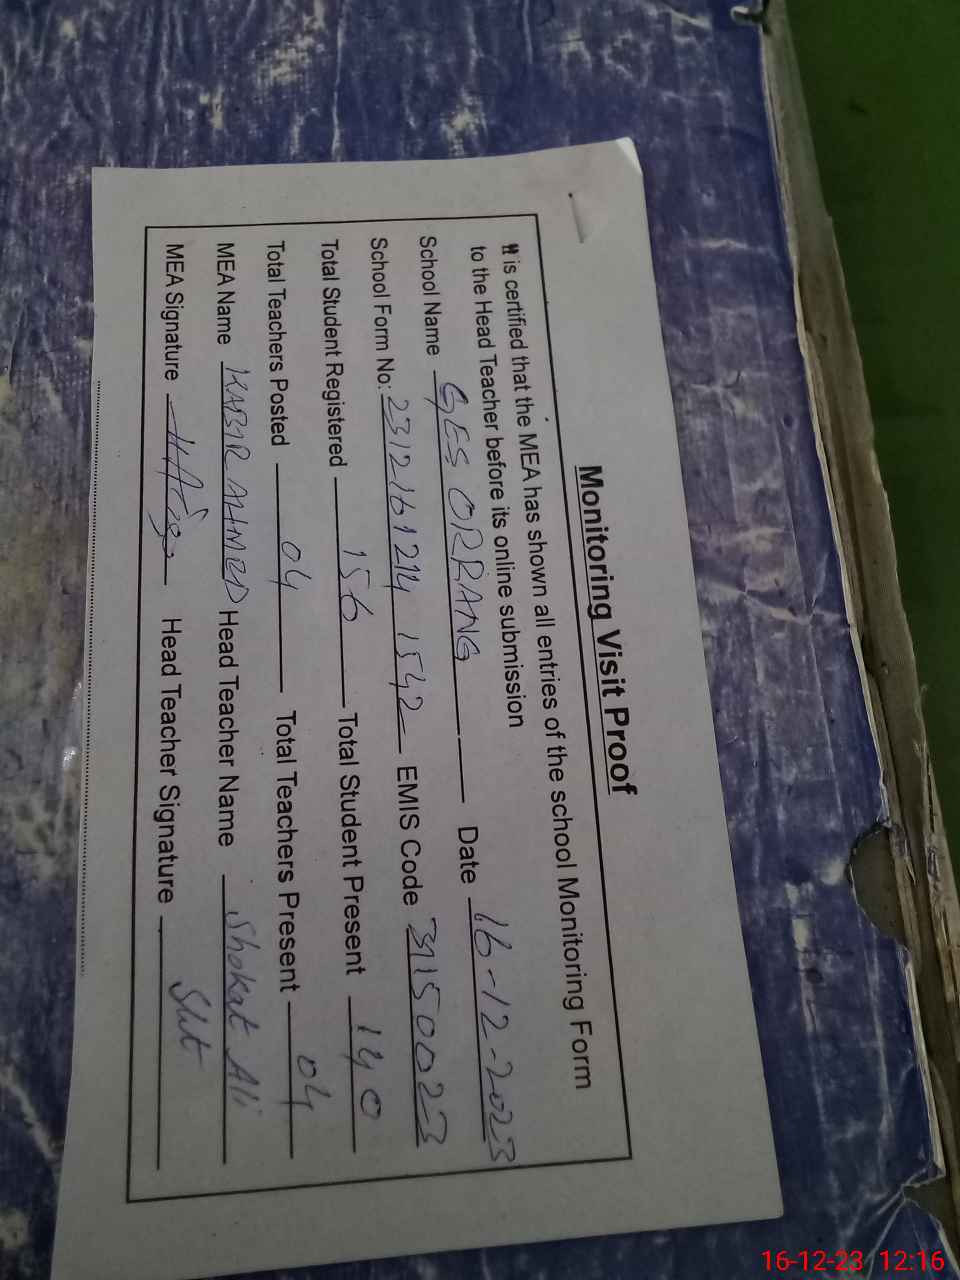 Monitoring Visit Proof
It is certified that the MEA has shown all entries of the school Monitoring Form
to the Head Teacher before its online submission
School Name GES ORRANG Date 16-12-2023
School Form No: 23121612141542 EMIS Code 31150023
Total Student Registered 156 Total Student Present 140
Total Teachers Posted 04 Total Teachers Present 04
MEA Name KABIR AHMED Head Teacher Name Shokat Ali
MEA Signature Head Teacher Signature
16-12-23 12:16